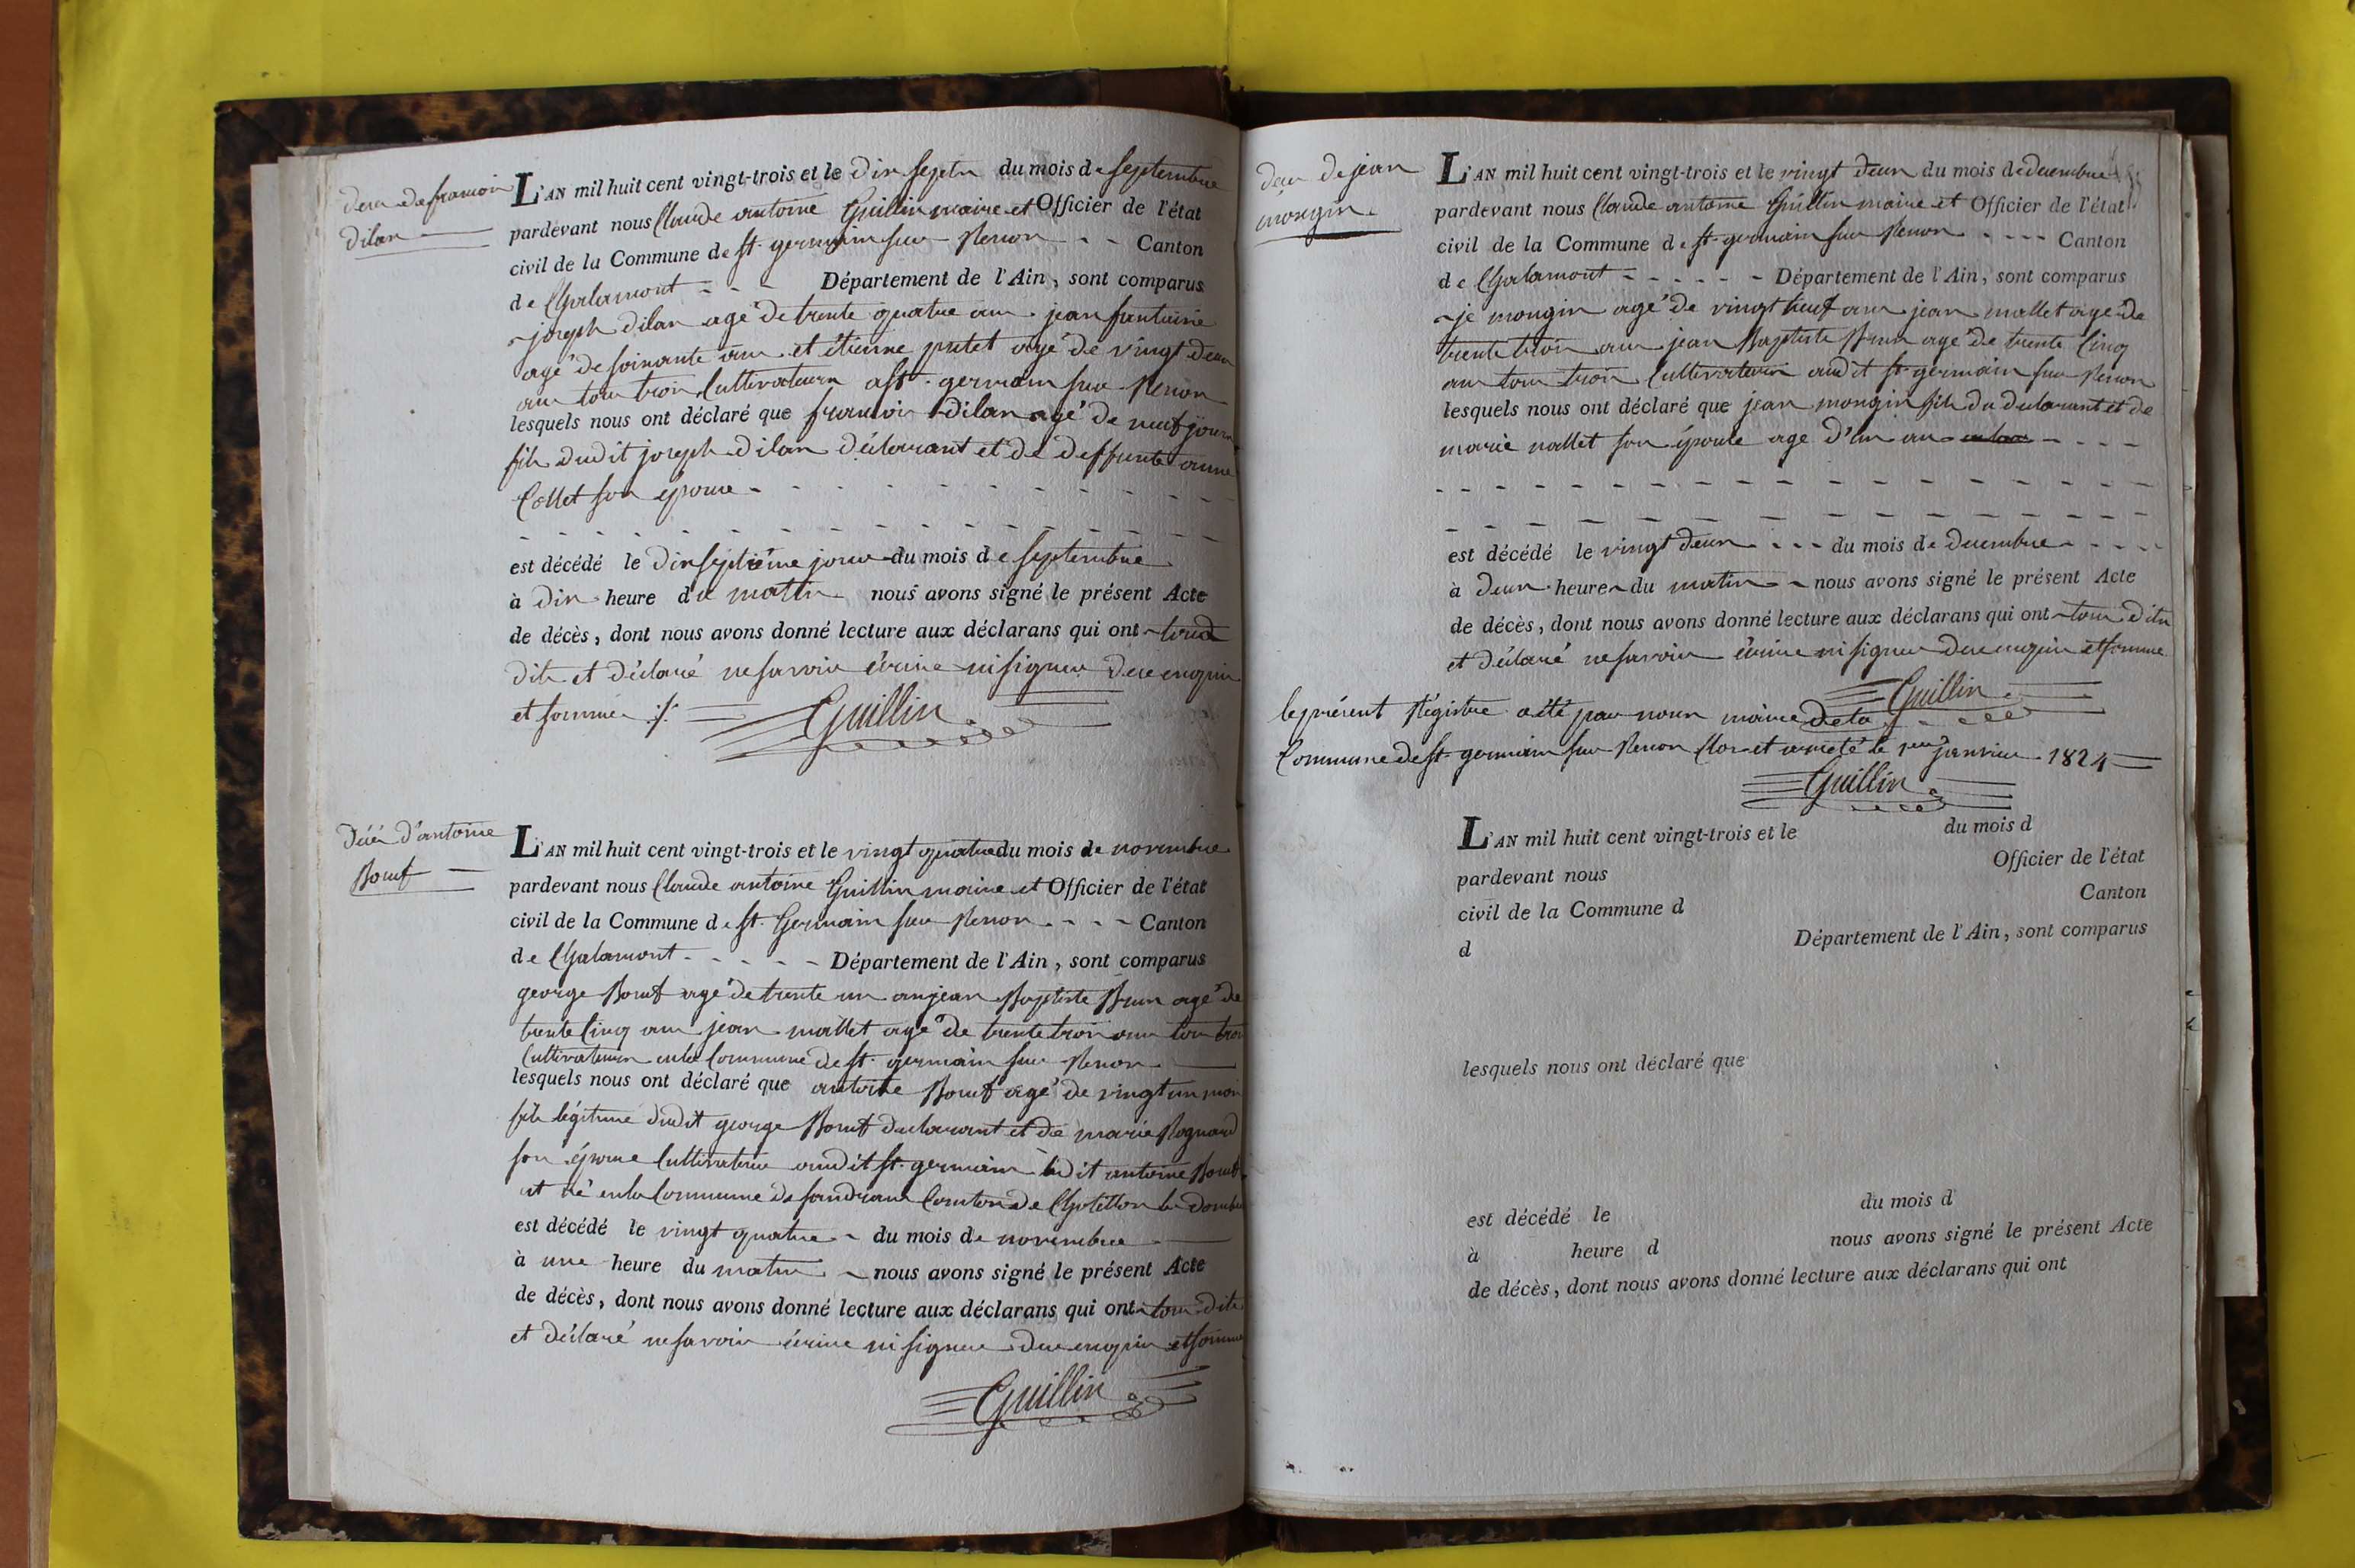 deces de francois
dilan
L'AN mil huit cent vingt-trois et le dix septe du mois de septembre
pardevant nous Claude antoine Guillin maire et Officier de l'état
civil de la Commune de st. germain sur Renon - - Canton
de Chalamont - - - Département de l'Ain, sont comparus
joseph dilan agé de trente quatre ans jean funtaine
agé de soixante ans et étienne putet agé de vingt deux
ans tous trois Cultivateurs a st. germain sur Renon
lesquels nous ont déclaré que francois dilan agé de neuf jours
fils dudit joseph dilan déclarant et de deffunte anne
Collet son épouse
est décédé le dixseptième jour du mois de septembre
à dix heure du matin nous avons signé le présent Acte
de décès, dont nous avons donné lecture aux déclarans qui ont tous
dits et déclaré ne savoir écrire ni signer de ce enquis
et sommés ./.
Guillin
décès d'antoine
Bouf
L'AN mil huit cent vingt-trois et le vingt quatre du mois de novembre
pardevant nous Claude antoine Guillin maire et Officier de l'état
civil de la Commune de st. Germain sur Renon - - - Canton
de Chalamont - - - - - Département de l'Ain, sont comparus
george Bouf agé de trente un an jean Baptiste Brun agé de
trente Cinq ans jean mallet agé de trente trois ans tous trois
Cultivateurs en la Commune de st. germain sur Renon
lesquels nous ont déclaré que antoine Bouf agé de vingt un mois
fils légitime dudit george Bouf declarant et de marie Rognard
son épouse Cultivatrice audit st. germain ledit antoine Bouf
est né en la Commune de sandrans Canton de Chatillon les dombes
est décédé le vingt quatre du mois de novembre
à une heure du matin nous avons signé le présent Acte
de décès, dont nous avons donné lecture aux déclarans qui ont tous dits
et déclaré ne savoir écrire ni signer de ce enquis et somme
Guillin
deces de jean
mongin
L'AN mil huit cent vingt-trois et le vingt deux du mois de decembre
pardevant nous Claude antoine Guillin maire et Officier de l'état
civil de la Commune de st. germain sur Renon - - - - Canton
de Chalamont - - - - - Département de l'Ain, sont comparus
mongin agé de vingt neuf ans jean mallet agé de
trente trois ans jean Baptiste Brun agé de trente Cinq
ans tous trois Cultivateurs audit st. germain sur Renon
lesquels nous ont déclaré que jean mongin fils du declarant et de
marie mallet son épouse age d'un an
est décédé le vingt deux - - - du mois de decembre
à deux heures du matin nous avons signé le présent Acte
de décès, dont nous avons donné lecture aux déclarans qui ont tous dits
et déclaré ne savoir écrire ni signer de ce enquis et somme
Guillin
le présent Régistre a été par nous maire de la
Commune de st. germain sur Renon Clos et arrêté le 1er janvier 1824
Guillin
L'AN mil huit cent vingt-trois et le du mois d
pardevant nous Officier de l'état
civil de la Commune d Canton
d Département de l'Ain, sont comparus
lesquels nous ont déclaré que
est décédé le du mois d
à heure d nous avons signé le présent Acte
de décès, dont nous avons donné lecture aux déclarans qui ont